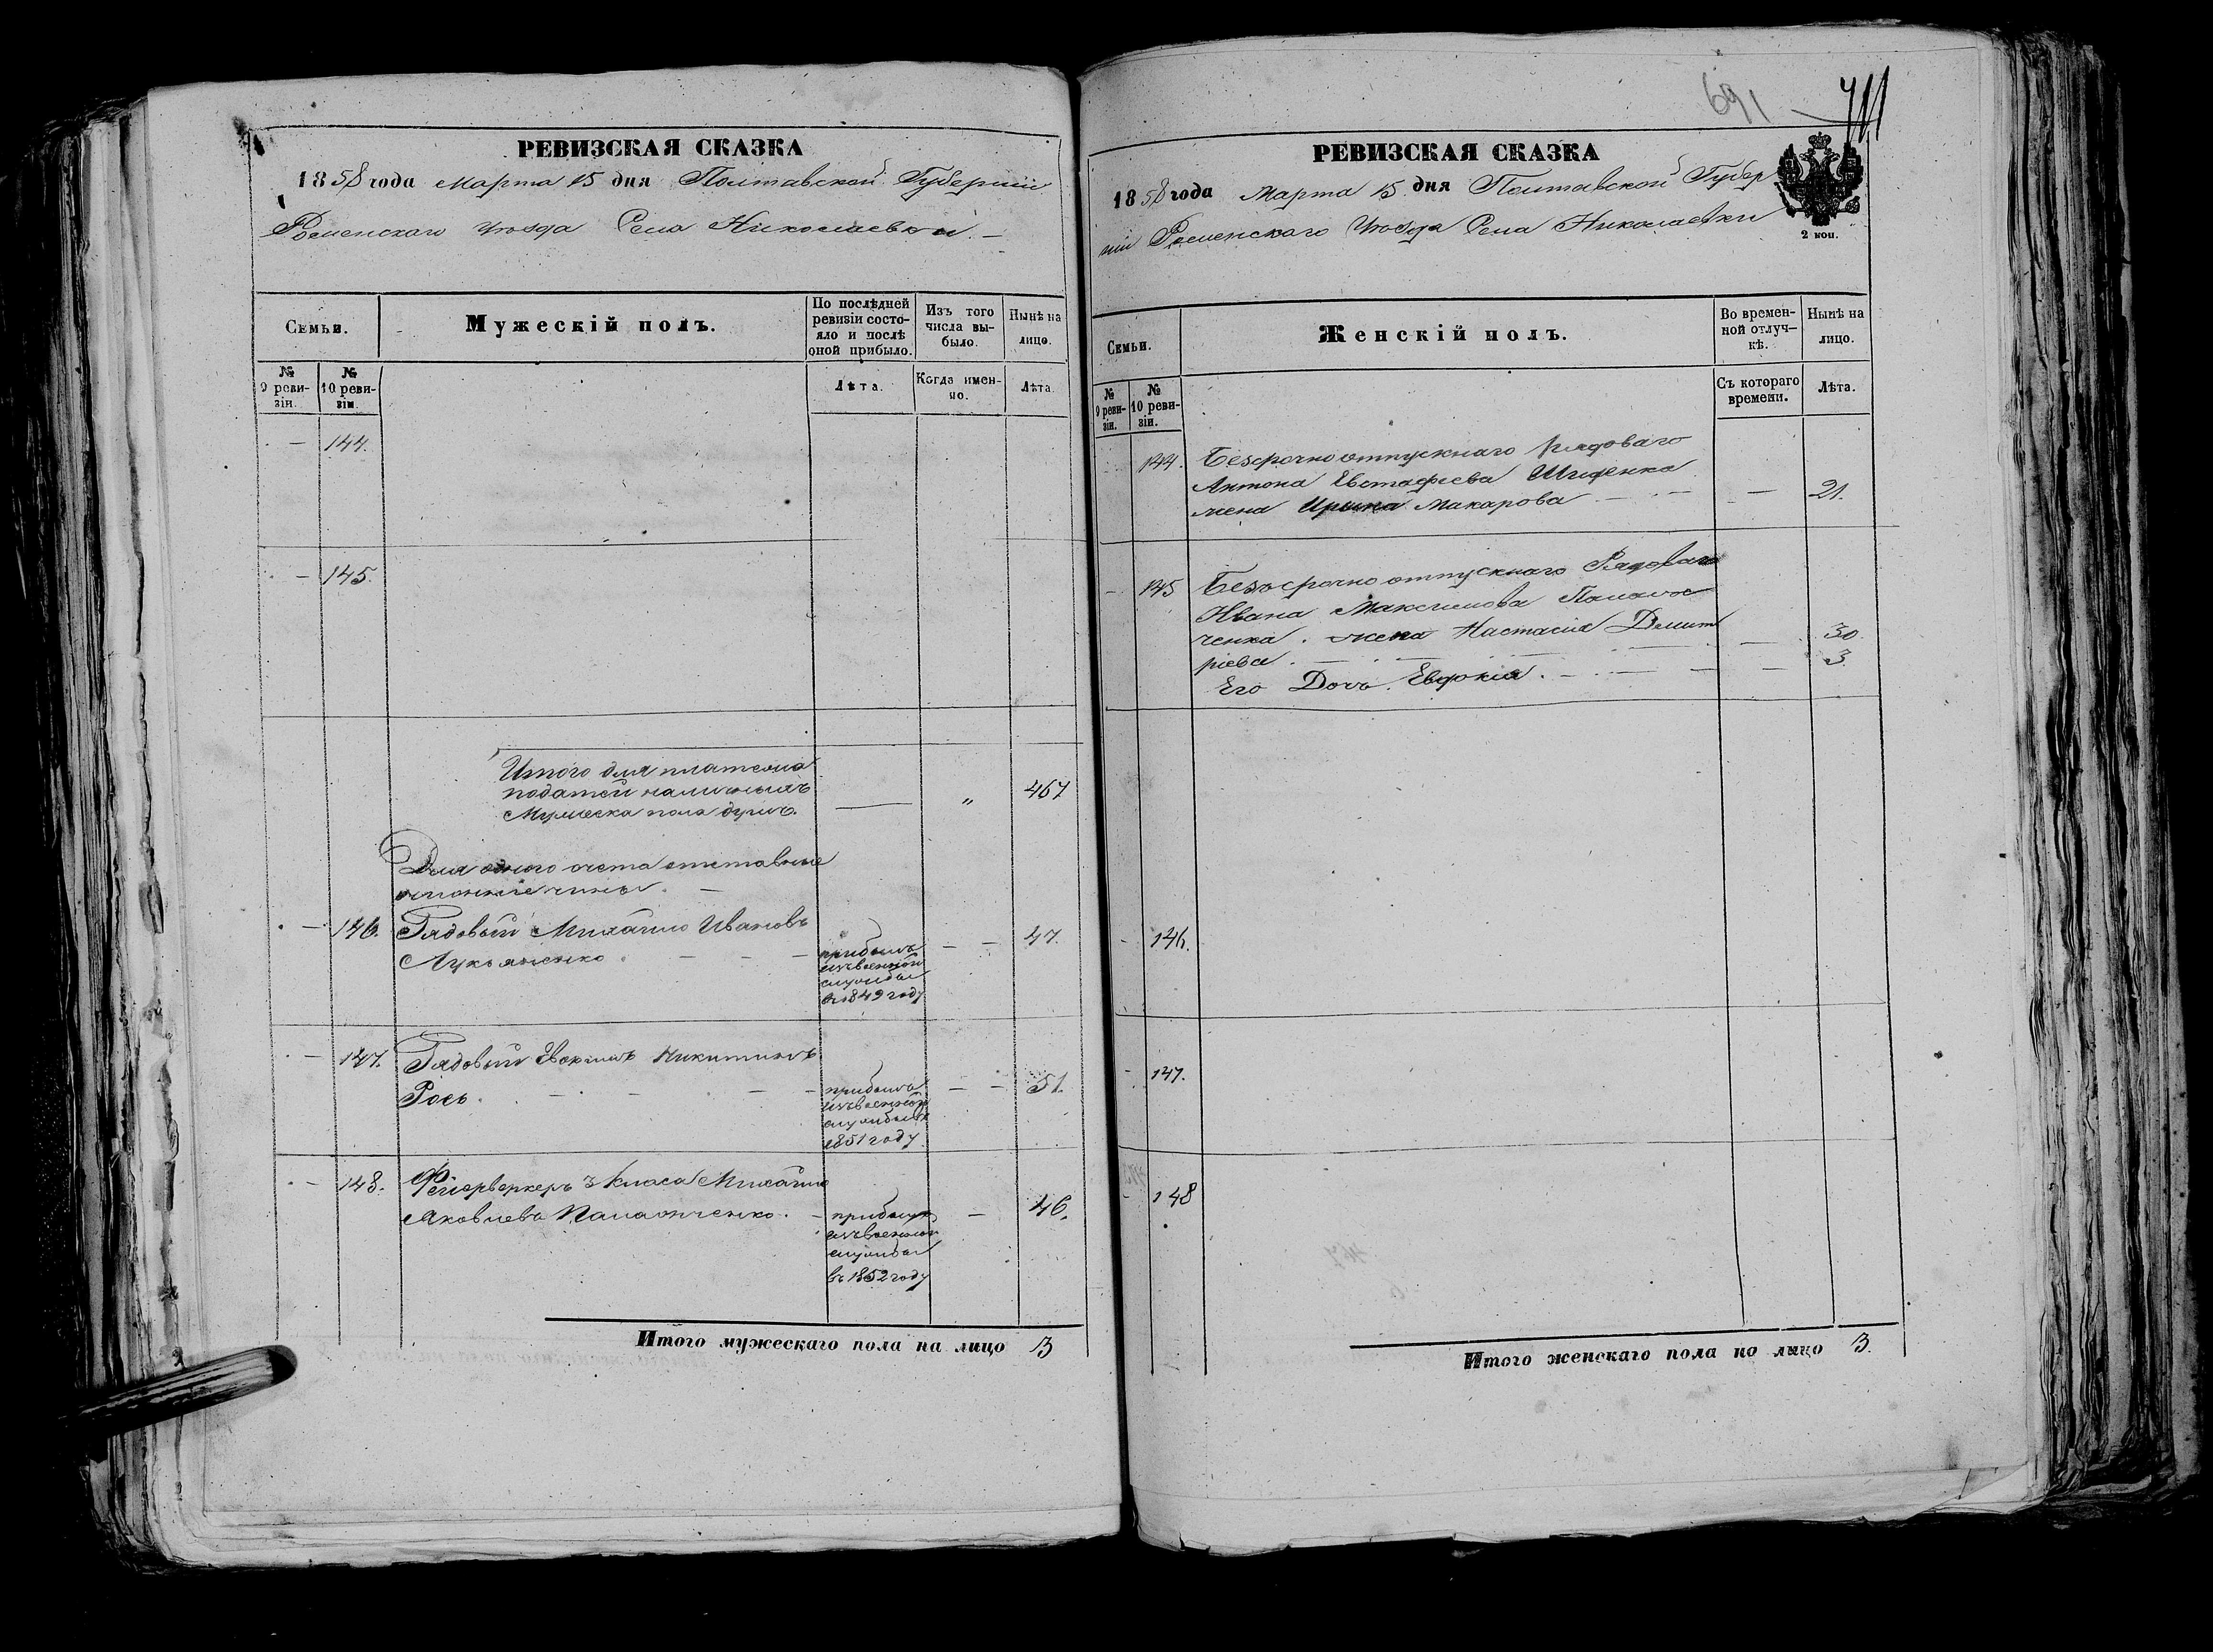 РЕВИЗСКАЯ СКАЗКА
1858 года Марта 15 дня Полтавской Губерніи
Роменскаго Уѣзда Села Николаевки. —
Семьи.
Мужескій полъ.
По послѣдней ревизіи состо-
яло и послѣ
оной прибыло.
Изъ того
числа вы-
было.
Нынѣ на
лицо.
№
9 реви-
зіи.
№
10 реви-
зіи.
Лѣта.
Когда имен-
но.
Лѣта.
— 144.
— 145.
Итого для платежа
податей наличныхъ
Мужеска пола душъ. — " 467
Для одного счета отставные
нижніе чины. —
— 146. Рядовый Михайло Ивановъ
Лукьяненко. — — — 47.
прибылъ
изъ военной
службы
въ 1849 году
— 147. Рядовый Евдокимъ Никитинъ
Рось. — — — 51.
прибылъ
изъ военной
службы въ
1851 году
— 148. Фейерверкеръ 3 класа Михайло
Яковлевъ Паламарченко. — — 46.
прибылъ
изъ военной
службы
въ 1852 году
Итого мужескаго пола на лицо 3
691
711
РЕВИЗСКАЯ СКАЗКА
1858 года Марта 15 дня Полтавской Губер
ніи Роменскаго Уѣзда Села Николаевки
2 коп.
Семьи.
Женскій полъ.
Во времен-
ной отлуч-
кѣ.
Нынѣ на
лицо.
№
9 реви-
зіи.
№
10 реви-
зіи.
Съ котораго
времени.
Лѣта.
144. Безсрочноотпускнаго рядоваго
Антона Евстафіева
жена Ирина Макарова — — 21.
145 Безъсрочно отпускнаго Рядоваго
Ивана Максимова
ченка. жена Настасія Дмит
ріева. — — 30.
Его Дочь Евдокія. — — 3.
146.
147.
148
Итого женскаго пола на лицо 3.